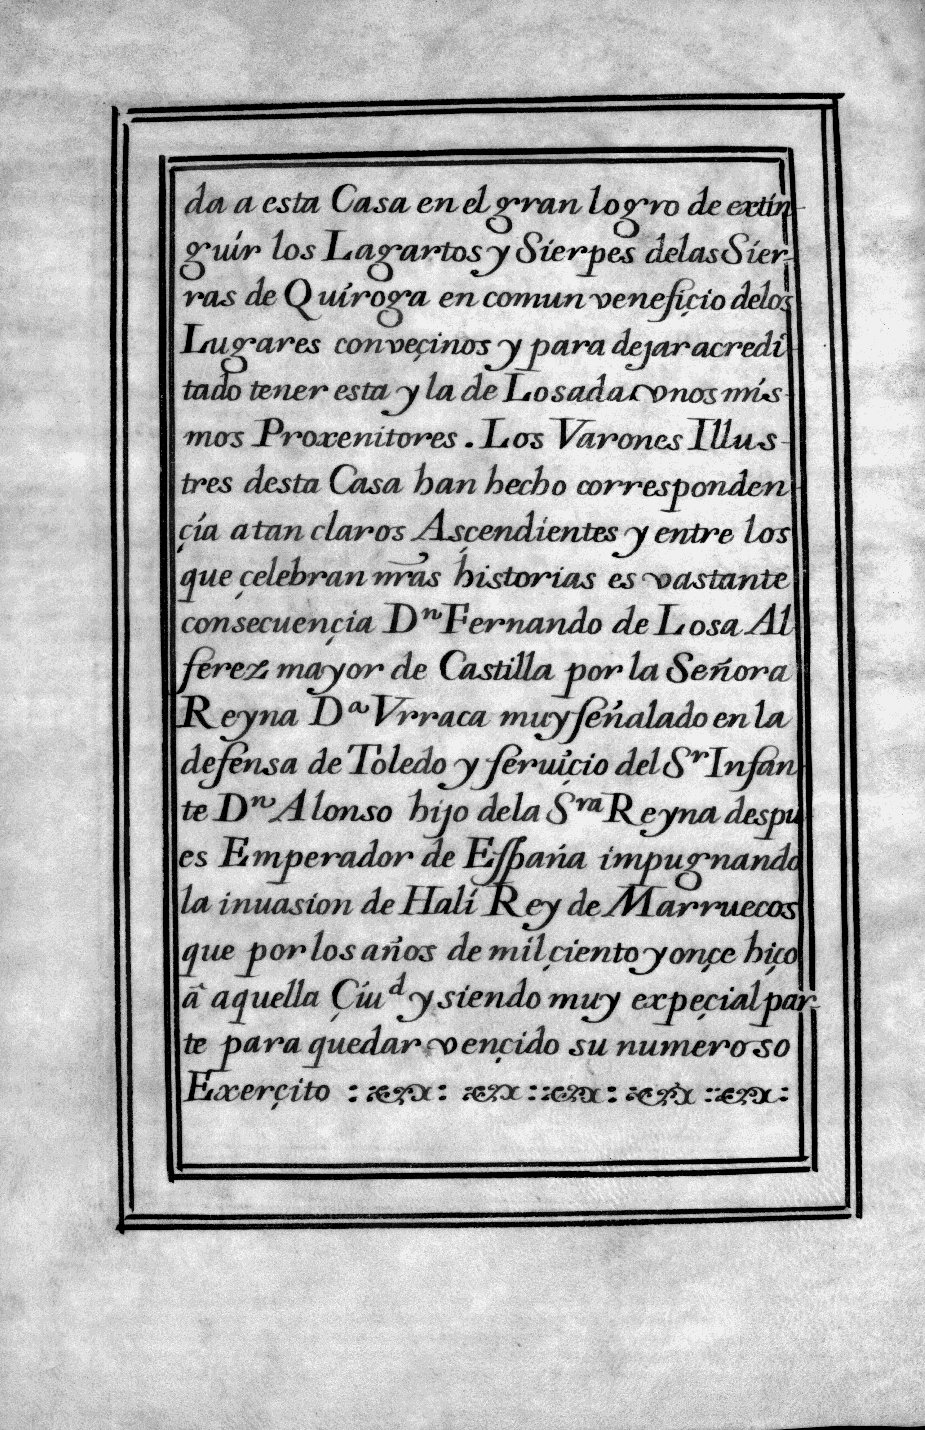 da a esta Casa en el gran logro de extin-
guir los Lagartos y Sierpes delas Sier-
ras de Quiroga en comun veneficio delos
Lugares conveçinos y para dejar acredi-
tado tener esta y la de Losada vnos mis-
mos Proxenitores. Los Varones Illus-
tres desta Casa han hecho corresponden-
çia a tan claros Asçendientes y entre los
que çelebran nrãs historias es vastante
consecuençia Dⁿ Fernando de Losa Al
ferez mayor de Castilla por la Señora
Reyna Dᵃ Vrraca muy señalado en la
defensa de Toledo y seruiçio del Sʳ Infan-
te Dⁿ Alonso hijo dela Sʳᵃ Reyna despu
es Emperador de España impugnando
la inuasion de Hali Rey de Marruecos
que por los años de mil çiento y onçe hiço
â aquella Çiuᵈ y siendo muy expeçial par-
te para quedar vençido su numeroso
Exerçito